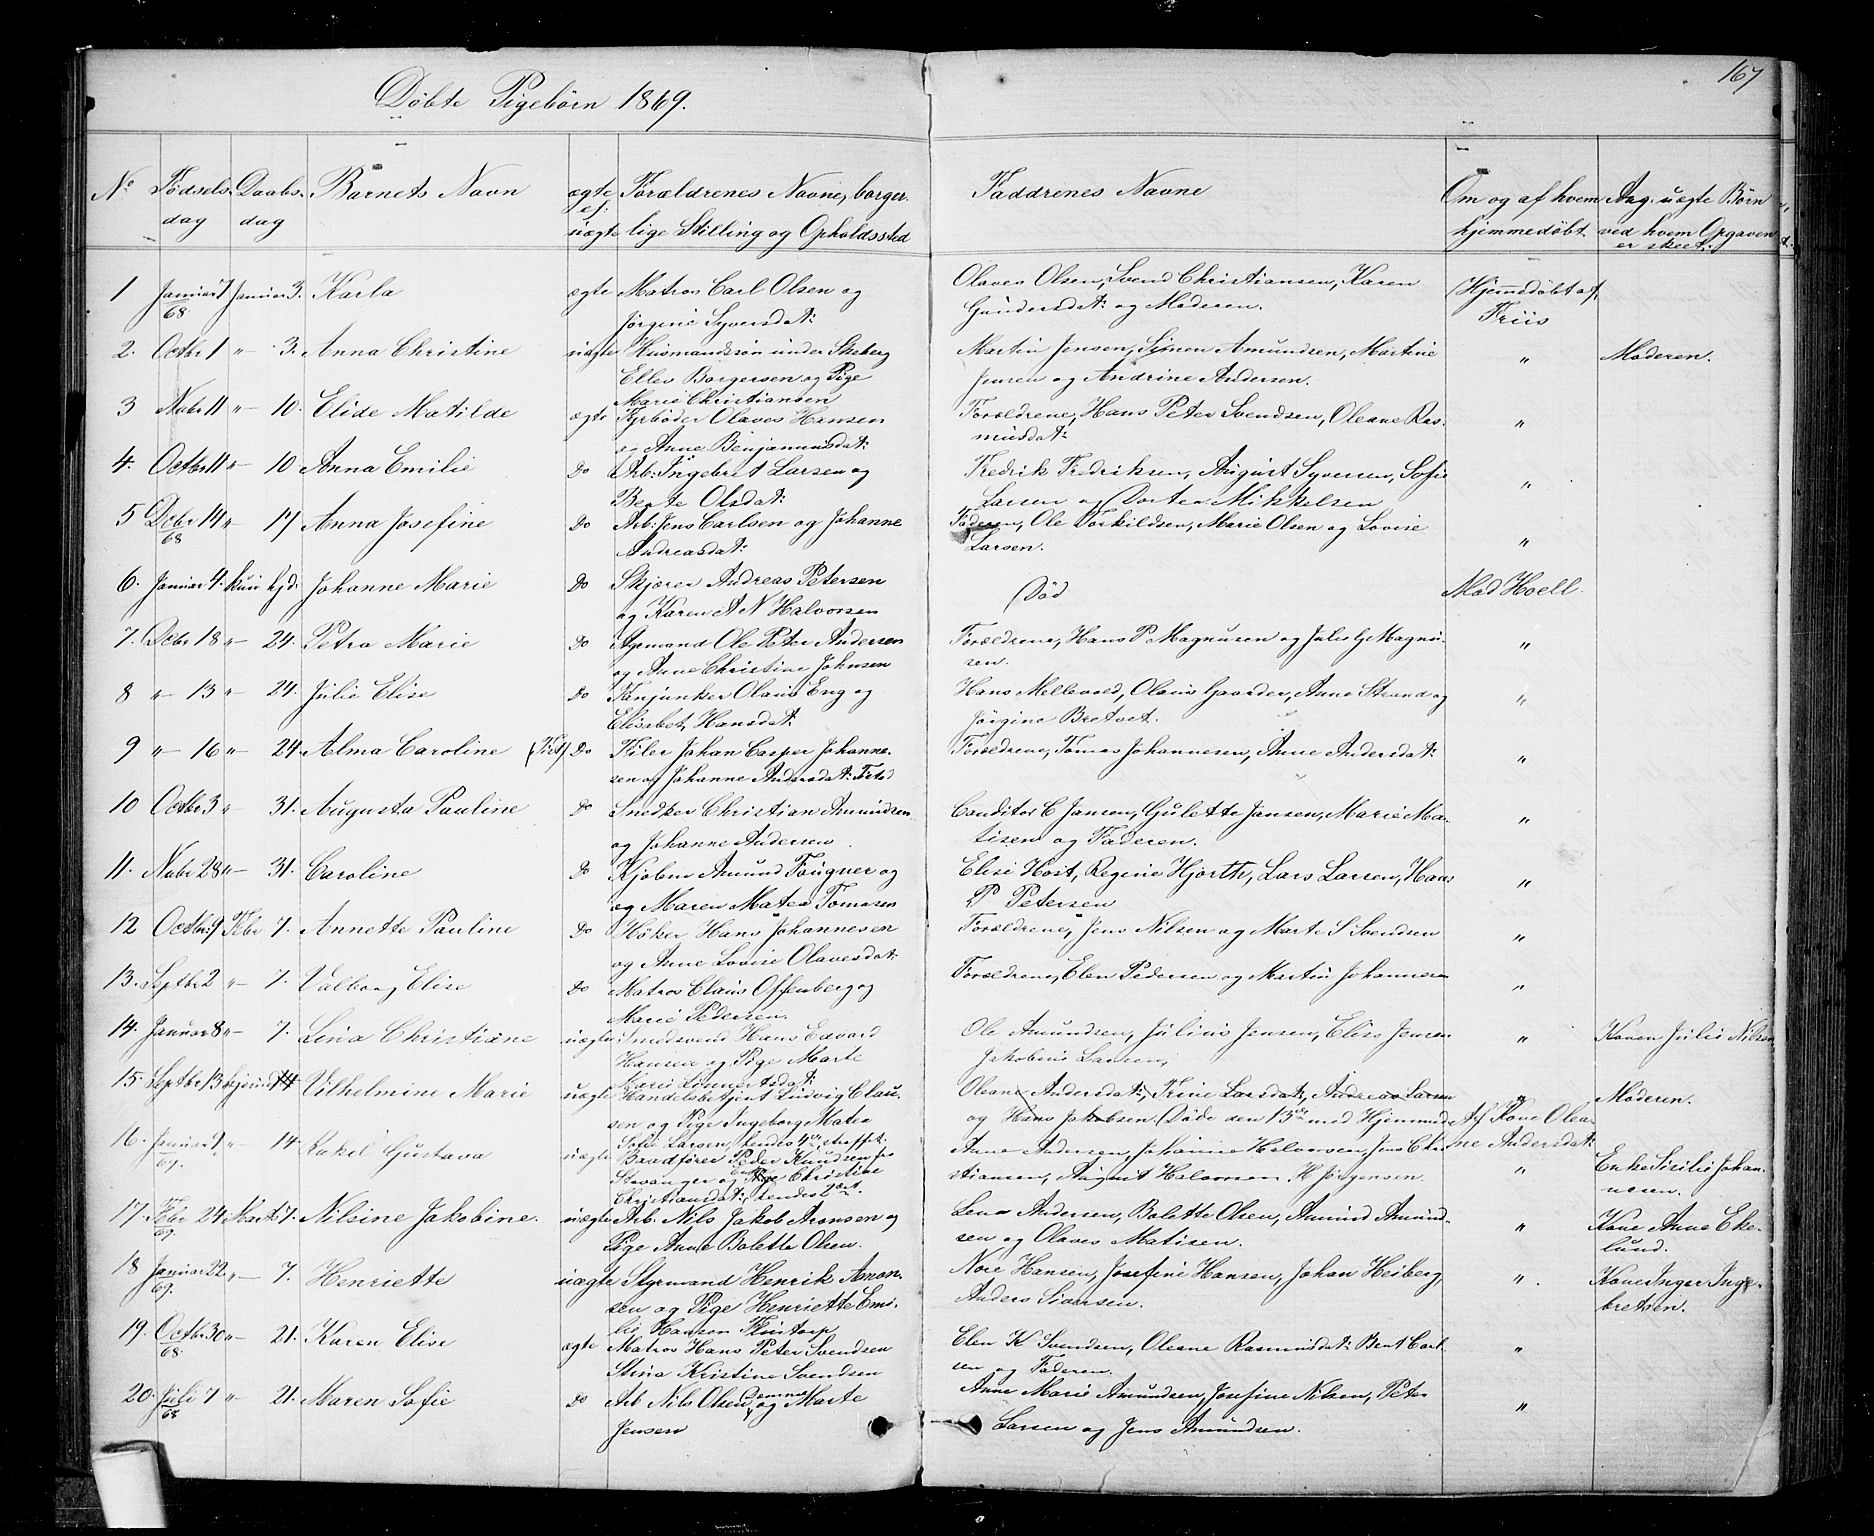 Döbte Pigebörn 1869.
167
No Födsels- Daabs- Barnets Navn ægte Forældrenes Navne, borger- Faddrenes Navne Om og af hvem Ang. uægte Börn
dag dag el: uægte lige Stilling og Opholdssted hjemmedöbt ved hvem Opgaven er skeet.
1 Januar 1 Januar 3. Karla ægte Matros Carl Olsen og Olaves Olsen, Svend Christiansen, Karen Hjemmedöbt af
68 Jörgine Syversdat: Gundersdat: og Moderen. Friis
2. Octbr 1 " 3. Anna Christine uægte Husmandssön under Skeberg Martin Jensen, Simen Amundsen, Martine " Moderen.
Ellev Borgersen og Pige Jensen og Andrine Andersen.
Marie Christiansen
3 Nobr 11 " 10. Elide Matilde ægte Fyrböder Olaves Hansen Forældrene, Hans Peter Svendsen, Oleane Ras- "
og Anne Benjaminsdat: musdat:
4. Octbr 11 " 10 Anna Emilie Do Arb: Ingebret Larsen og Fredrik Fredriksen, August Syversen, Sofie "
Berte Olsdat: Larsen og Dortea Mikkelsen
5 Debr 14 " 17 Anna Josefine Do Arb: Jens Carlsen og Johanne Faderen, Ole Torkildsen, Marie Olsen og Lovise "
68 Andreasdat: Larsen.
6. Januar 4. kun hjd: Johanne Marie Do Skjærer Andreas Petersen Död Mad Hvell.
og Karen A N Halvorsen
7. Debr 18 " 24. Petra Marie Do Styrmand Ole Peter Andersen Forældrene, Hans P Magnusen og Julie G Magnu- "
og Anne Christine Johnsen sen.
8 " 13 " 24. Julie Elise Do Olaus Eng og Hans Mellevold, Olaus Gaarder, Anne Strand og "
Elisabet Hansdat: Jörgine Bretvet.
9 " 16 " 24. Alma Caroline Do Föler Johan Casper Johanne- Forældrene, Tomas Johannesen, Anne Andersdat: "
sen og Johanne Andersdat:
10 Octbr 3 " 31. Augusta Pauline Do Snedker Christian Amundsen Conditor C Jansen, Gulette Jansen, Marie Ma- "
og Johanne Andersen tisen og Faderen.
11. Nobr 28 " 31. Caroline Do Kjöbm Amund Fougner og Elise Höst, Regine Hjorth, Lars Larsen, Hans "
og Maren Matea Tomasen P Petersen
12 Octbr 9 Febr 7. Annette Pauline Do Höker Hans Johannesen Forældrene, Jens Nilsen og Marte S Svendsen "
og Anne Lovise Olavesdat:
13. Septbr 2 " 7. Valborg Elise Do Matros Claus Offenberg og Forældrene, Elen Pedersen og Martin Johannesen "
Marie Pedersen.
14. Januar 8 " 7. Lina Christiane uægte Smedsvend Hans Edvard Ole Amundsen, Julius Jensen, Elise Jensen " Konen Julie Nilsen
Hansen og Pige Marte Jakobine Larsen,
Marie Linnertsdat:
15. Septbr 13 Vilhelmine Marie uægte Handelsbetjent Ludvig Clau- Oleane Andersdat: Trine Larsdat, Andreas Larsen " Moderen.
sen og Pige Ingeborg Matea og Hans Jakobsen (Döde den 13de med Hjemmed Af Kone Olea-
Sofie Larsen, hendes 4de ne Andersdat:
16. Januar 1 " 14. Rakel Gustava uægte Baadförer Peder Knudsen fra Anne Andersen, Johanne Halvorsen, Jens Chri- " Enke Sisilie Johan-
69. Stavanger og Christine stiansen, August Halvorsen H Jörgensen. nesen.
Christiansdat: hendes 2det.
17. Febr 24 Marts 7. Nilsine Jakobine. uægte Arb. Nils Jakob Aronsen og Lena Andersen, Bolette Olsen, Amund Amund- " Kone Anne Eke-
69. Pige Anne Bolette Olsen. sen og Olaves Matisen. lund.
18 Januar 22 " 7. Henriette uægte Styrmand Henrik Amon- Nore Hansen, Josefine Hansen, Johan Heiberg, " Kone Inger Inge-
69. sen og Pige Henriette Emi- Anders Siversen. bretsen.
lie Hansen Flintorp
19. Octbr 30 " 21. Karen Elise ægte Matros Hans Peter Svendsen Elen K Svendsen, Oleane Rasmusdat: Bent Carl- "
68 Stina Kristine Svendsen sen og Faderen.
20. Juli 7 " 21. Maren Sofie Do Arb Nils Olsen og Marte Anne Marie Amundsen, Josefine Nilsen, Peter "
68 Jensen Larsen og Jens Amundsen.